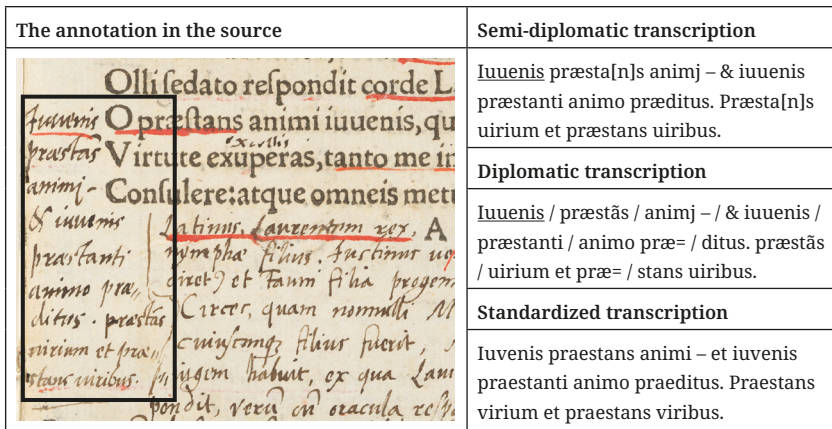 The annotation in the source
Olli ſedato reſpondit corde L
O præſtans animi iuuenis, qu
excellis
Virtute exuperas, tanto me in
Conſulere: atque omneis metu
Iuuenis
præstãs
animj –
& iuuenis
præstanti
animo præ=
ditus. præstãs
uirium et præ=
stans uiribus.
Latinus, Laurentum rex, A
nymphæ filius. Iustinus
et Fauni filia progen
Circes, quam nonnulli M
filius fuerit,
iugem habuit, ex qua Laui
pondit, verũ oracula resp
Semi-diplomatic transcription
Iuuenis præsta[n]s animj – & iuuenis
præstanti animo præditus. Præsta[n]s
uirium et præstans uiribus.
Diplomatic transcription
Iuuenis / præstãs / animj – / & iuuenis /
præstanti / animo præ= / ditus. præstãs
/ uirium et præ= / stans uiribus.
Standardized transcription
Iuvenis praestans animi – et iuvenis
praestanti animo praeditus. Praestans
virium et praestans viribus.